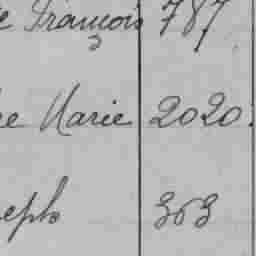 e François 787
e Marie 2020.
eph 363